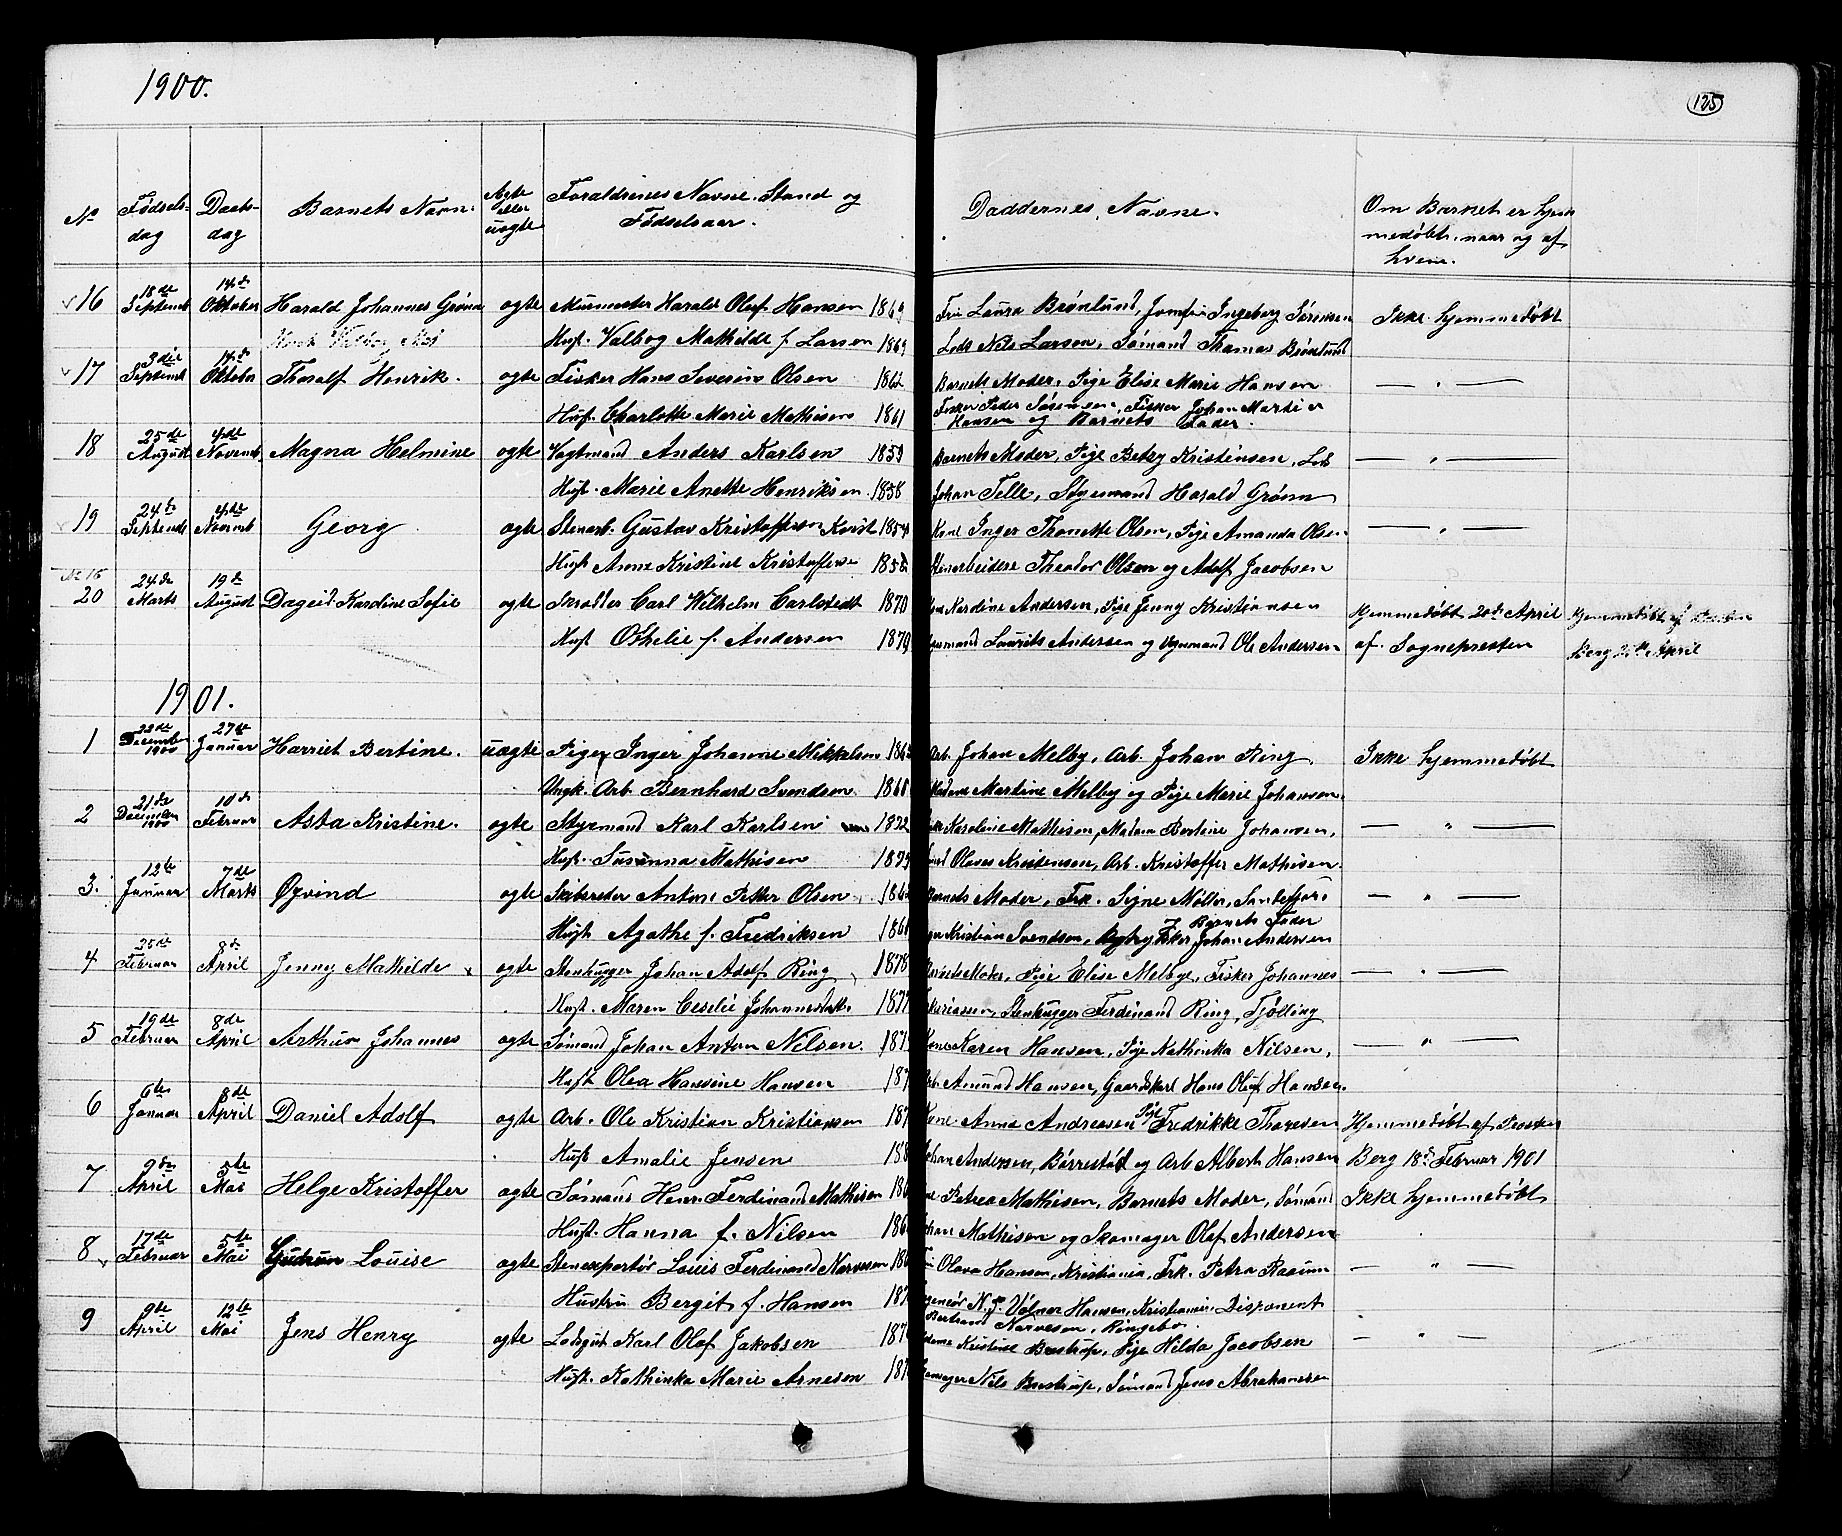 1900.
125
No Fødsels-dag Daabs-dag Barnets Navn. Ægte eller uægte Foraldrenes Navne. Stand og Fødselsaar. Daddernes Navne. Om Barnet er hjem medøbt, naar og af hvem.
16 18de Septemb 14de Oktober Harald Johannes Grønn ægte Murmester Harald Oluf Hansen 1869 Fru Laura Brønlund, Jomfru Ingeborg Sørensen Ikke hjemmedøbt
Hust. Valbog Mathilde f. Larsen 1869 Lods Nils Larsen, Sømand Thomas Brønlund
17 3die Septemb 14de Oktober Thoralf Henrik. ægte Fisker Hans Severin Olsen 1862 Barnets Moder, Pige Elise Marie Hansen — " —
Hust. Charlotte Marie Mathisen 1861 Fisker Peder Sørensen, Fisker Johan Martin Hansen og Barnets Fader.
18 25de August 4de Novemb. Magna Helmine ægte Vagtmand Anders Karlsen 1859 Barnets Moder, Pige Betsy Kristensen, Lods — " —
Hust. Marie Anette Henriksen 1858 Johan Telle, Styrmand Harald Grønn
19 24de Septemb 4de Novemb Georg. ægte Stenarb. Gustav Kristoffersen Kvist 1854 Kone Inger Thonette Olsen, Pige Amanda Olsen — " —
Hust. Anne Kristine Kristoffersen 1852 Stenarbeidere Theodor Olsen og Adolf Jacobsen
No 16
20 24de Marts 19de August Dageid Kardine Sofie ægte Skrædder Carl Wilhelm Carlstedt 1870 Kone Kardine Andersen, Pige Jenny Kristiansen Hjemmedøbt 20de April Hjemmedøbt af
Hust Othelie f. Andersen 1879 Laurits Andersen og Styrmand Ole Andersen af Sognepresten Berg 20de April
1901.
1 22de December 1900 27de Januar Harriet Bertine. uægte Pige Inger Johanne Mikkelsen Arb. Johan Melby, Arb. Johan Ring Ikke hjemmedøbt
Ungk. Arb. Bernhard Svendsen. 1868 Madame Martine Melby og Pige Marie Johansen.
2 21de December 1900 10de Februar Asta Kristine. ægte Styrmand Karl Karlsen 1872 Karoline Mathisen, Madam Bertine Johansen, — " —
Hust. Susanna Mathisen Olaves Kristensen, Arb. Kristoffer Mathisen.
3. 12te Januar 7de Marts Øyvind ægte Skibsreder Anton Petter Olsen Barnets Moder, Frk. Signe Møller, Sandefjord — " —
Hust Agathe f. Fredriksen Kristian Svendsen, Fisker Johan Andersen Barnets Fader
4 25de Februar 8de April Jenny Mathilde ægte Stenhugger Johan Adolf Ring 1878 Barnets Moder, Pige Elise Melbye, Fisker Johannes — " —
Hust. Maren Cesilie Johannesdatter 187 Stenhugger Ferdinand Ring, Tjølling
5 19de Februar 8de April Arthur Johannes ægte Sømand Johan Anton Nilsen. 187 Kone Karen Hansen, Pige Kathinka Nilsen, — " —
Hust Olea Hansine Hansen 187 Arb. Amund Hansen, Gaardskarl Hans Oluf Hansen.
6 6te Januar 8de April Daniel Adolf ægte Arb. Ole Kristian Kristiansen 187 Kone Anna Andreasen Pige Fredrikke Thoresen Hjemmedøbt af Presten
Hust Amalie Jensen 188 Johan Andersen, Børrestad og Arb Albert Hansen Berg 18de Februar 1901
7 9de April 5te Mai Helge Kristoffer ægte Sømand Henr. Ferdinand Mathisen 186 Petrea Mathisen, Barnets Moder, Sømand Ikke hjemmedøbt
Hust. Hanna f. Nilsen 186 Johan Mathisen og Skomager Olaf Andersen
8 17de Februar 5te Mai Gudrun Louise ægte Stenexportør Louis Ferdinand Narvesen 186 Fru Olava Hansen, Kristiania, Frk. Petra Raaum — " —
Hustru Bergit f. Hansen 187 N. J. Volner Hansen, Kristiania, Disponent Bertrand Narvesen, Ringebo.
9 9de April 12te Mai Jens Henry ægte Lodsgut Karl Olaf Jakobsen 187 Madame Kristine Bustrup, Pige Hilda Jacobsen — " —
Hust. Kathinka Marie Arnesen 187 Skomager Nils Bustrup, Sømand Jens Abrahamsen